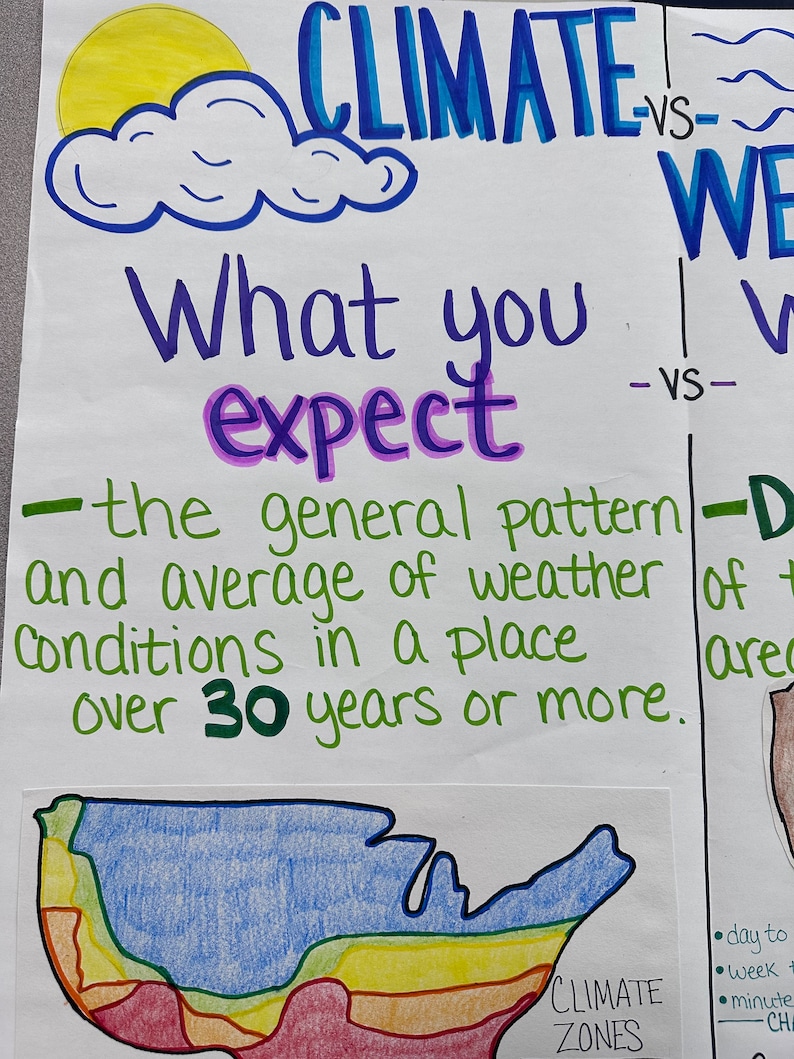 CLIMATE
-VS-
WE
What you
expect
-VS-
- the general pattern
and average of weather
conditions in a place
over 30 years or more.
- D
of
• day to
• week
CLIMATE
ZONES